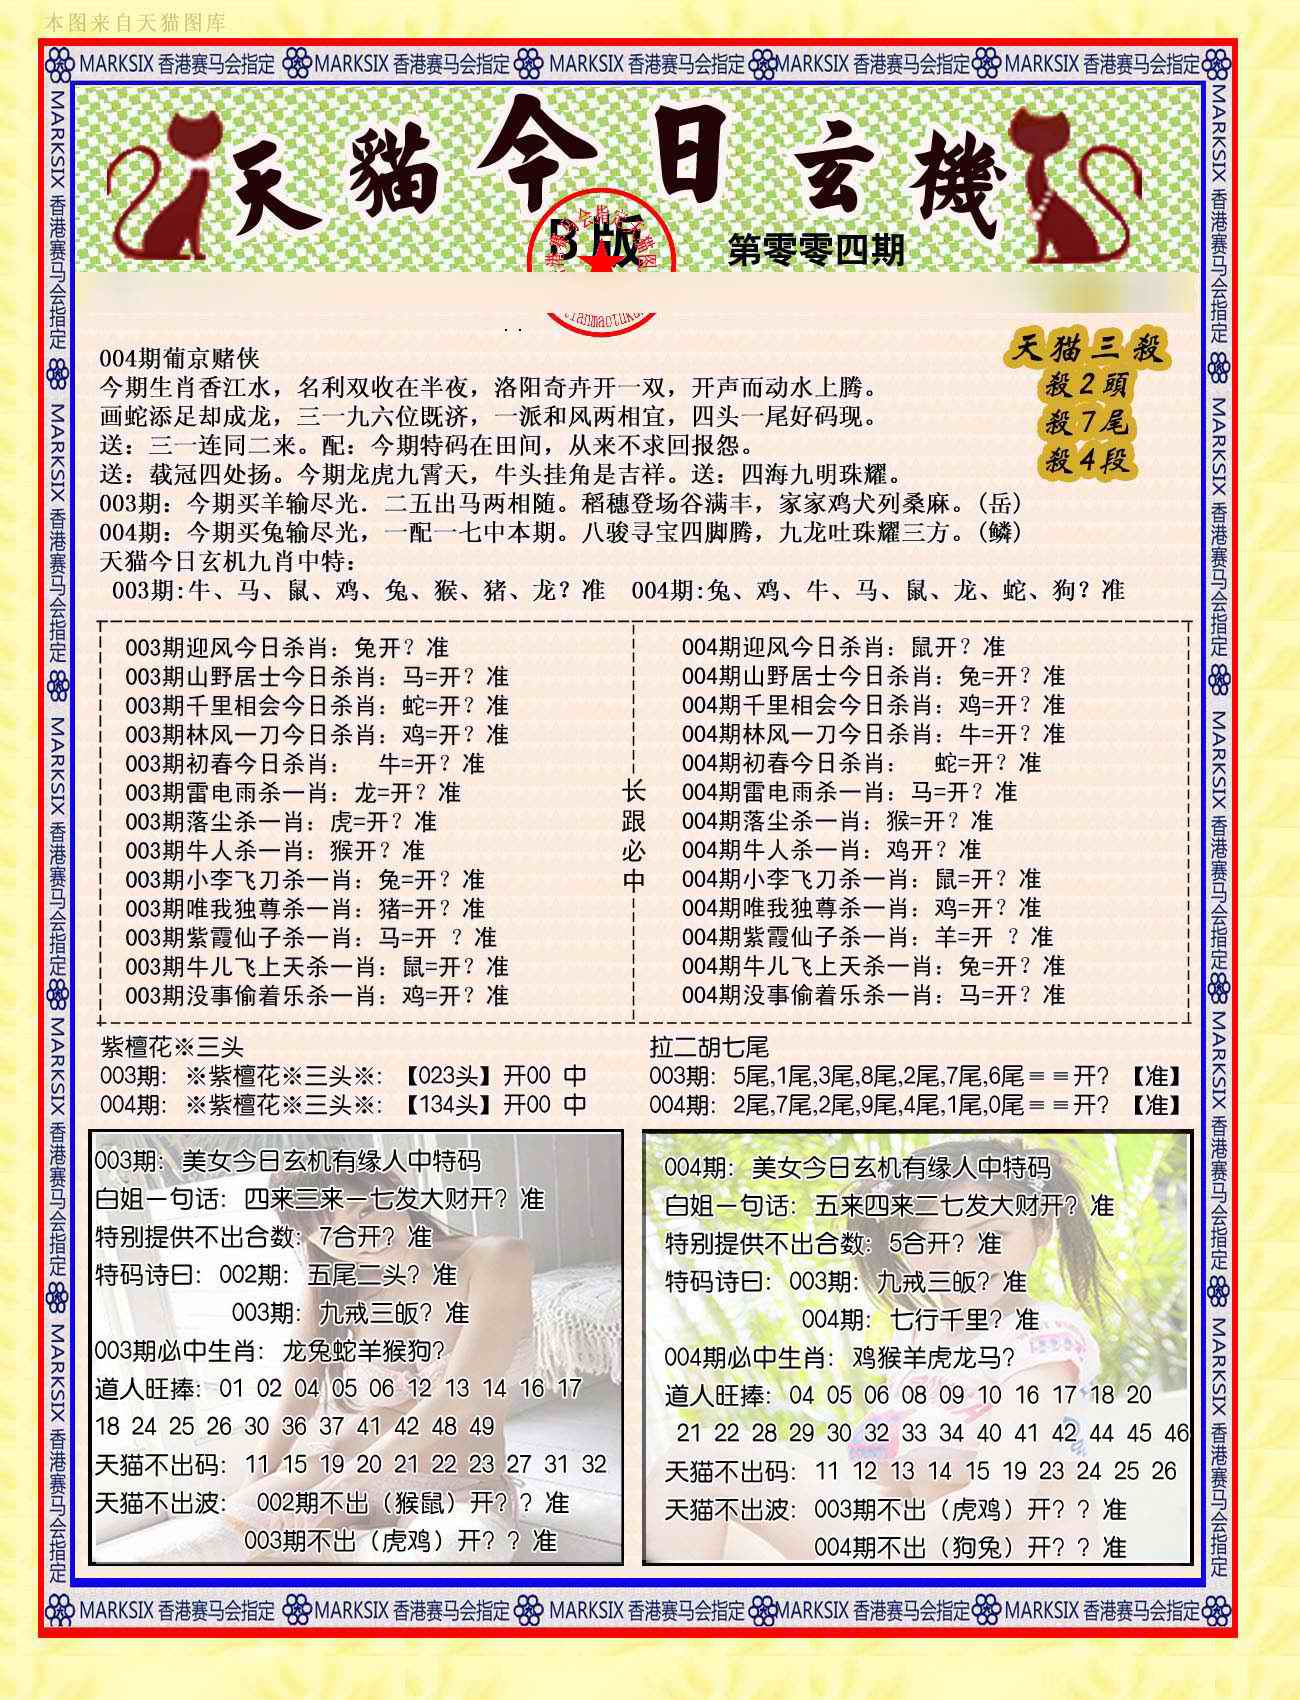 本图来自天猫图库
MARKSIX 香港赛马会指定 MARKSIX 香港赛马会指定 MARKSIX 香港赛马会指定 MARKSIX 香港赛马会指定 MARKSIX 香港赛马会指定
天貓今日玄機
B版
第零零四期
天猫三殺
殺2頭
殺7尾
殺4段
004期葡京赌侠
今期生肖香江水，名利双收在半夜，洛阳奇卉开一双，开声而动水上腾。
画蛇添足却成龙，三一九六位既济，一派和风两相宜，四头一尾好码现。
送：三一连同二来。配：今期特码在田间，从来不求回报怨。
送：载冠四处扬。今期龙虎九霄天，牛头挂角是吉祥。送：四海九明珠耀。
003期：今期买羊输尽光．二五出马两相随。稻穗登场谷满丰，家家鸡犬列桑麻。(岳)
004期：今期买兔输尽光，一配一七中本期。八骏寻宝四脚腾，九龙吐珠耀三方。(鳞)
天猫今日玄机九肖中特：
003期:牛、马、鼠、鸡、兔、猴、猪、龙？准 004期:兔、鸡、牛、马、鼠、龙、蛇、狗？准
003期迎风今日杀肖：兔开？准
003期山野居士今日杀肖：马=开？准
003期千里相会今日杀肖：蛇=开？准
003期林风一刀今日杀肖：鸡=开？准
003期初春今日杀肖： 牛=开？准
003期雷电雨杀一肖：龙=开？准
003期落尘杀一肖：虎=开？准
003期牛人杀一肖：猴开？准
003期小李飞刀杀一肖：兔=开？准
003期唯我独尊杀一肖：猪=开？准
003期紫霞仙子杀一肖：马=开 ？准
003期牛儿飞上天杀一肖：鼠=开？准
003期没事偷着乐杀一肖：鸡=开？准
长跟必中
004期迎风今日杀肖：鼠开？准
004期山野居士今日杀肖：兔=开？准
004期千里相会今日杀肖：鸡=开？准
004期林风一刀今日杀肖：牛=开？准
004期初春今日杀肖： 蛇=开？准
004期雷电雨杀一肖：马=开？准
004期落尘杀一肖：猴=开？准
004期牛人杀一肖：鸡开？准
004期小李飞刀杀一肖：鼠=开？准
004期唯我独尊杀一肖：鸡=开？准
004期紫霞仙子杀一肖：羊=开 ？准
004期牛儿飞上天杀一肖：兔=开？准
004期没事偷着乐杀一肖：马=开？准
紫檀花※三头
003期: ※紫檀花※三头※: 【023头】开00 中
004期: ※紫檀花※三头※: 【134头】开00 中
拉二胡七尾
003期: 5尾,1尾,3尾,8尾,2尾,7尾,6尾＝＝开？【准】
004期: 2尾,7尾,2尾,9尾,4尾,1尾,0尾＝＝开？【准】
003期：美女今日玄机有缘人中特码
白姐一句话：四来三来一七发大财开？准
特别提供不出合数：7合开？准
特码诗曰：002期：五尾二头？准
003期：九戒三皈？准
003期必中生肖：龙兔蛇羊猴狗？
道人旺捧：01 02 04 05 06 12 13 14 16 17
18 24 25 26 30 36 37 41 42 48 49
天猫不出码：11 15 19 20 21 22 23 27 31 32
天猫不出波： 002期不出（猴鼠）开？？准
003期不出（虎鸡）开？？准
004期：美女今日玄机有缘人中特码
白姐一句话：五来四来二七发大财开？准
特别提供不出合数：5合开？准
特码诗曰：003期：九戒三皈？准
004期：七行千里？准
004期必中生肖：鸡猴羊虎龙马？
道人旺捧：04 05 06 08 09 10 16 17 18 20
21 22 28 29 30 32 33 34 40 41 42 44 45 46
天猫不出码：11 12 13 14 15 19 23 24 25 26
天猫不出波：003期不出（虎鸡）开？？准
004期不出（狗兔）开？？准
MARKSIX 香港赛马会指定 MARKSIX 香港赛马会指定 MARKSIX 香港赛马会指定 MARKSIX 香港赛马会指定 MARKSIX 香港赛马会指定
MARKSIX 香港赛马会指定 MARKSIX 香港赛马会指定 MARKSIX 香港赛马会指定 MARKSIX 香港赛马会指定 MARKSIX 香港赛马会指定
MARKSIX 香港赛马会指定 MARKSIX 香港赛马会指定 MARKSIX 香港赛马会指定 MARKSIX 香港赛马会指定 MARKSIX 香港赛马会指定